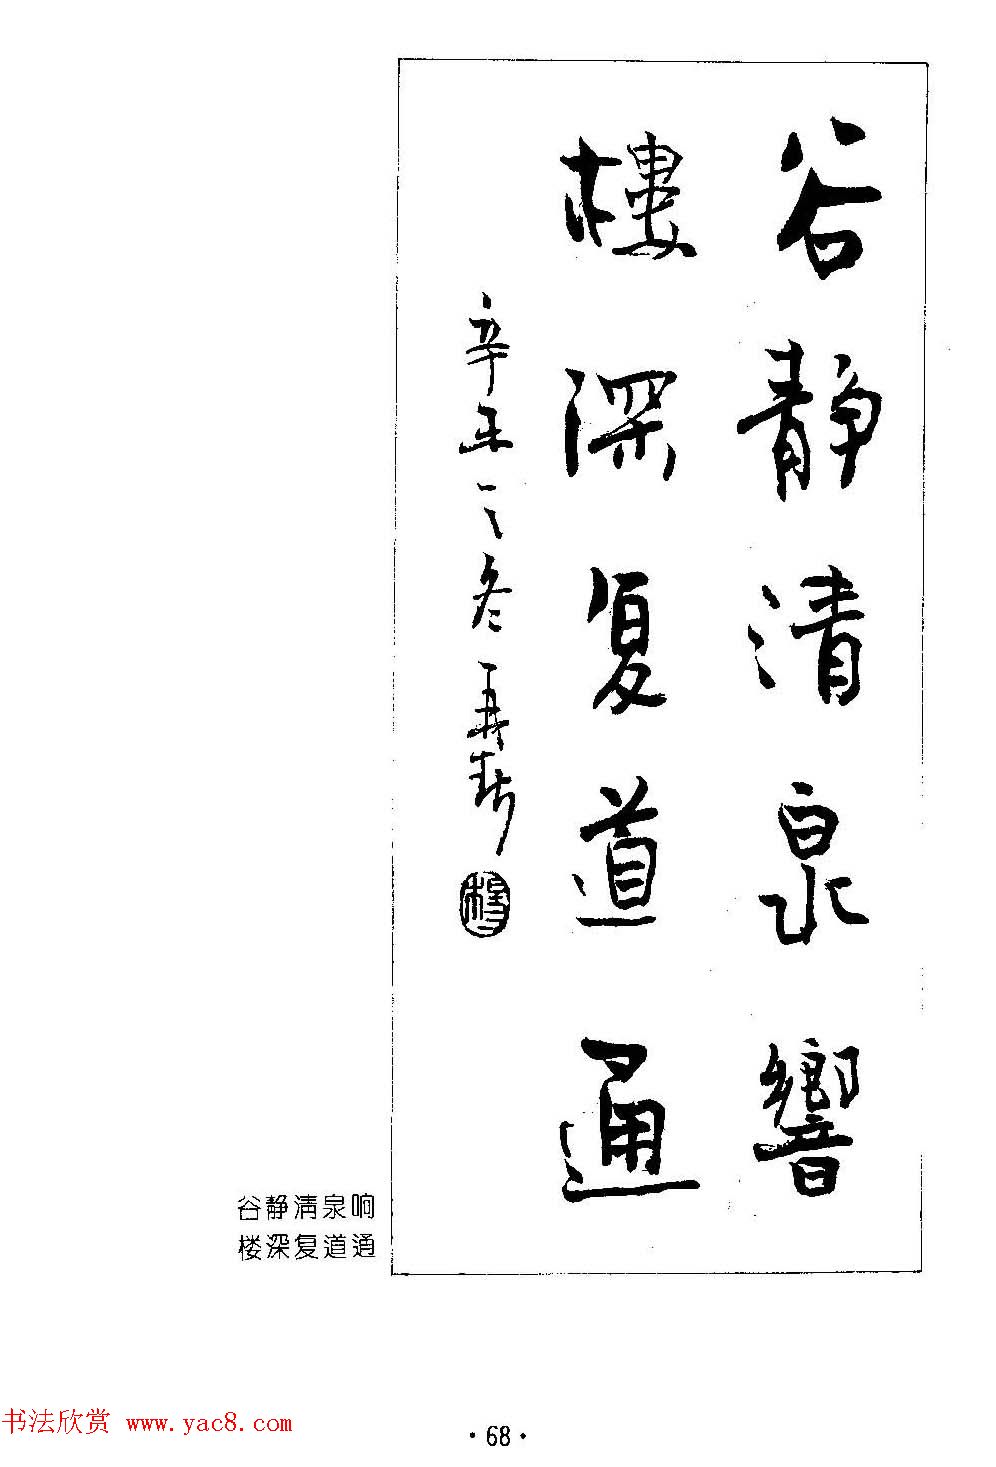 谷静清泉響
樓深复道通
辛未之冬再新
谷静清泉响
楼深复道通
书法欣赏 www.yac8.com
·68·